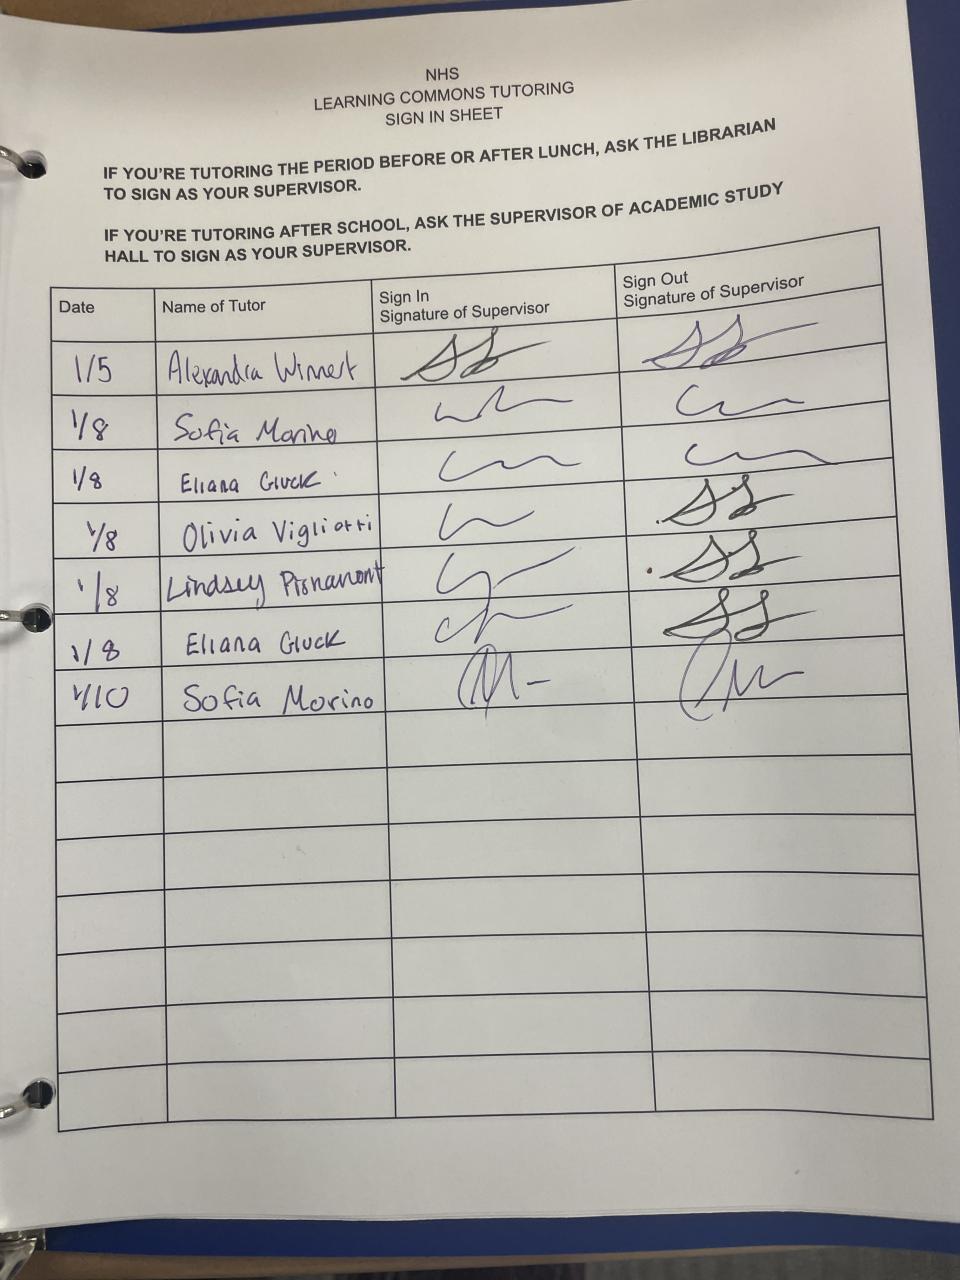 NHS
LEARNING COMMONS TUTORING
SIGN IN SHEET
IF YOU'RE TUTORING THE PERIOD BEFORE OR AFTER LUNCH, ASK THE LIBRARIAN
TO SIGN AS YOUR SUPERVISOR.
IF YOU'RE TUTORING AFTER SCHOOL, ASK THE SUPERVISOR OF ACADEMIC STUDY
HALL TO SIGN AS YOUR SUPERVISOR.
Date Name of Tutor Sign In Signature of Supervisor Sign Out Signature of Supervisor
1/5 Alexandra Winnert
1/8 Sofia Morino
1/8 Eliana Gluck
1/8 Olivia
1/8 Lindsey
1/8 Eliana Gluck
1/10 Sofia Morino